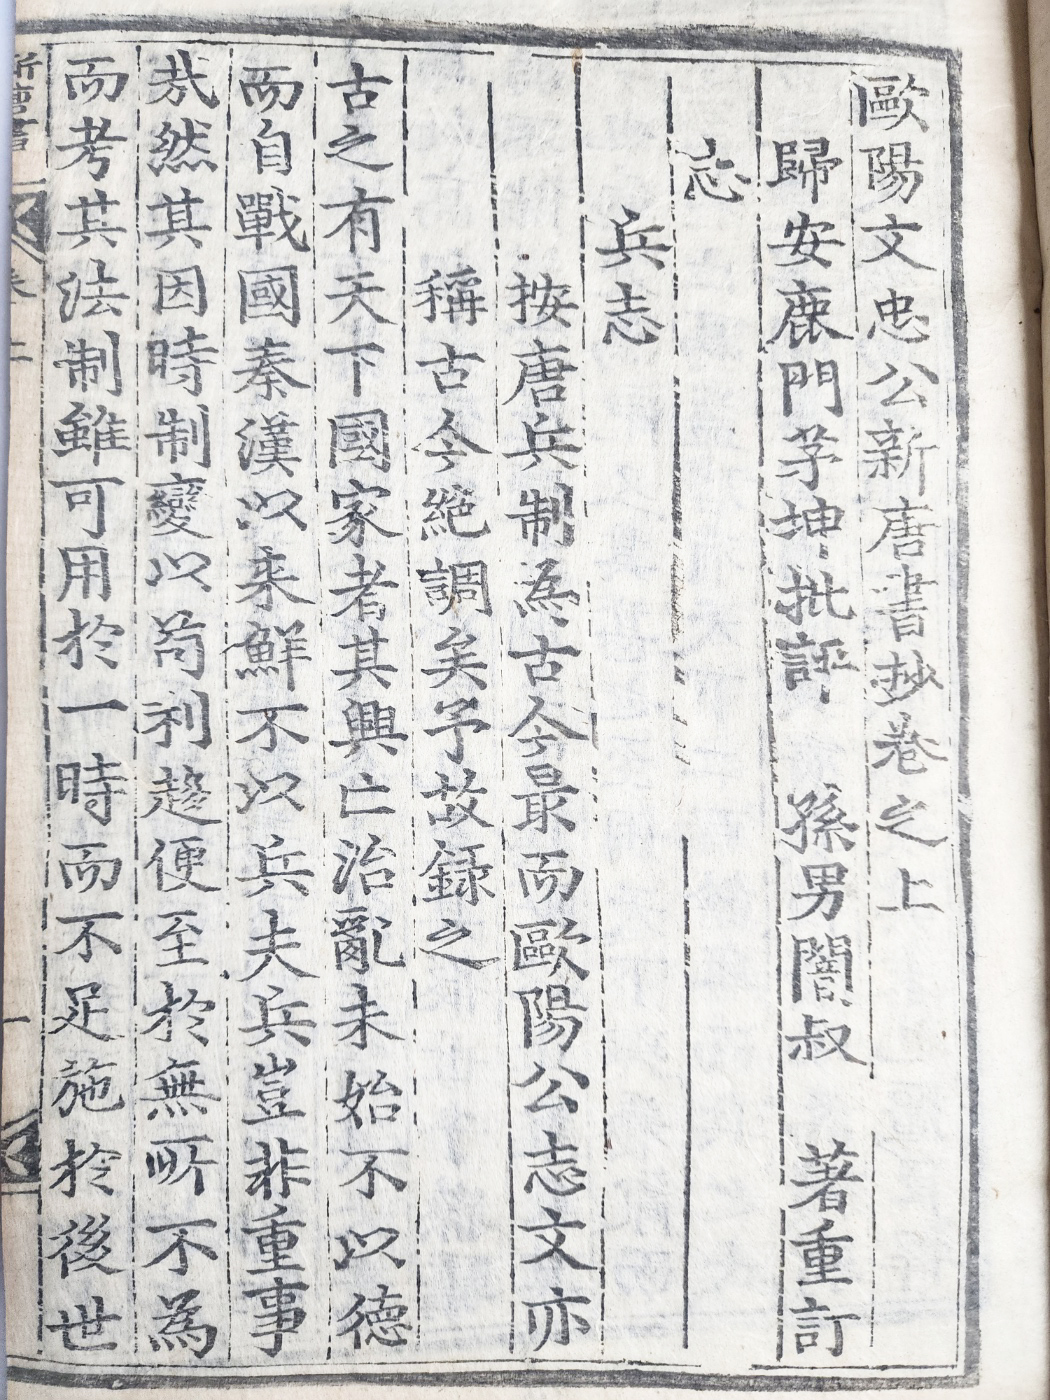 歐陽文忠公新唐書抄卷之上
歸安鹿門茅坤批評　孫男闇叔　著重訂
志
兵志
按唐兵制為古今最而歐陽公志文亦
稱古今絕調矣予故録之
古之有天下國家者其興亡治亂未始不以德
而自戰國秦漢以來鮮不以兵夫兵豈非重事
㢤然其因時制變以苟利趍便至於無所不為
而考其法制雖可用於一時而不足施於後世